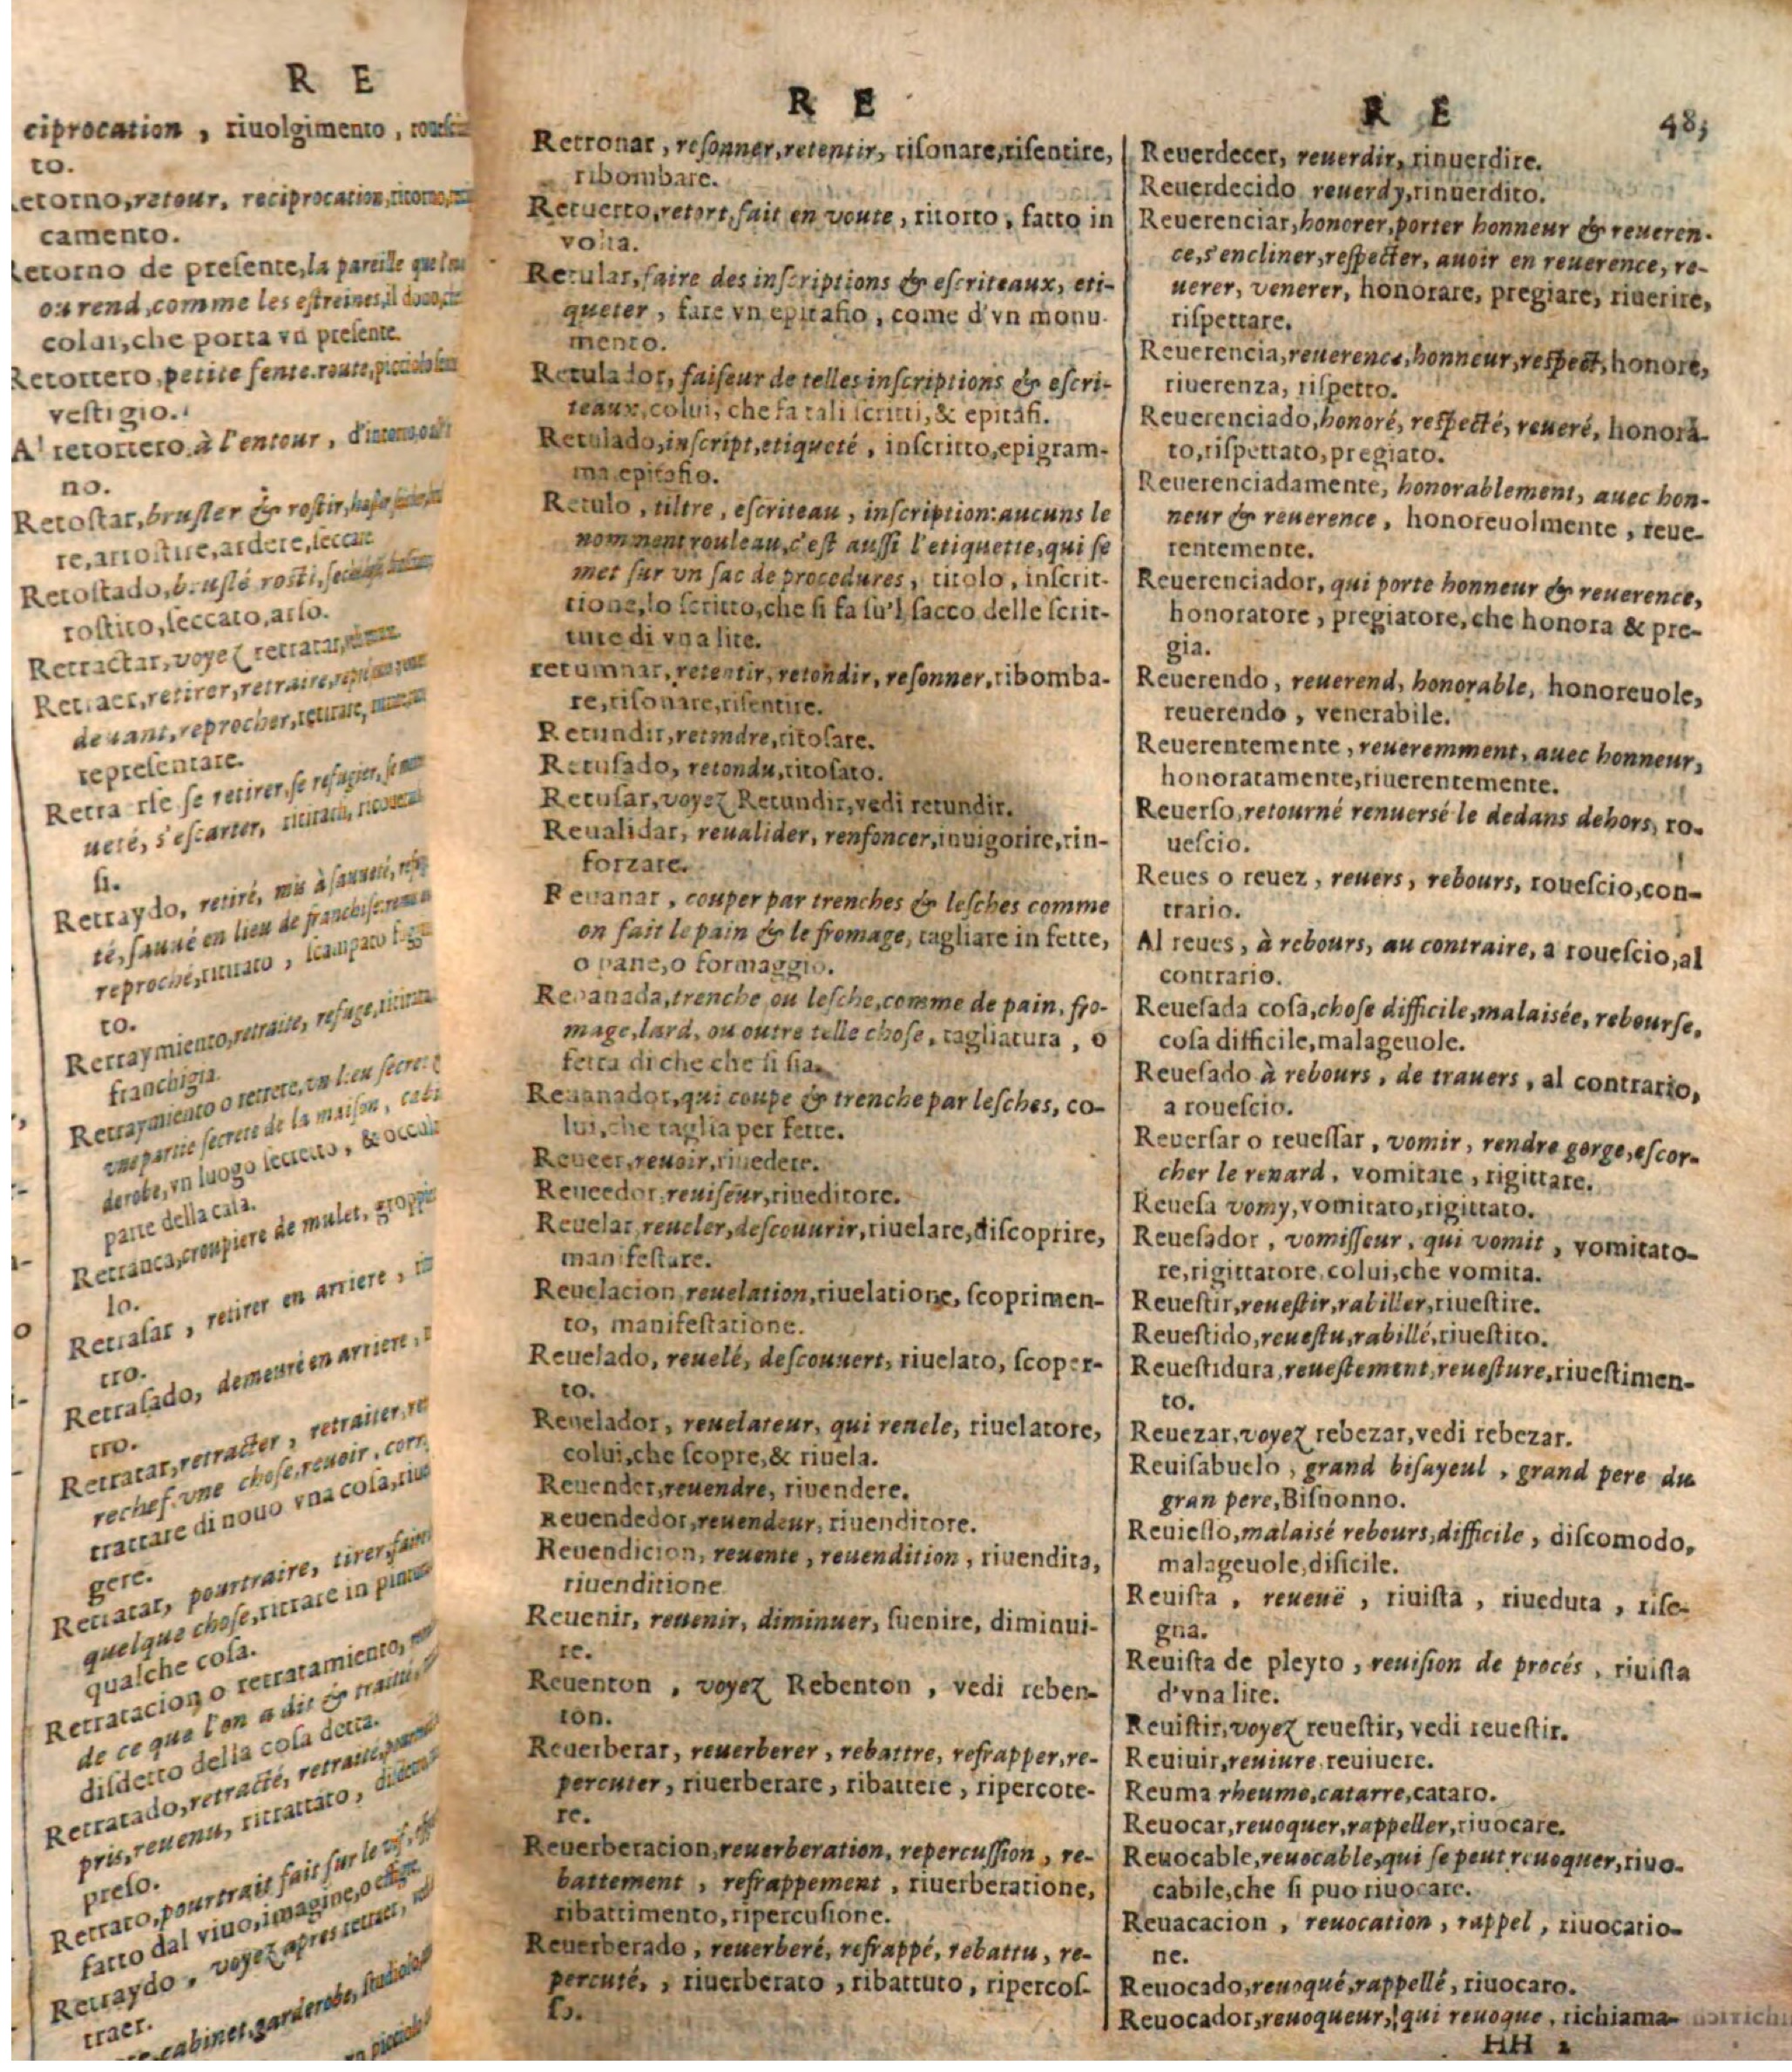 R E
ciprocation, riuolgimento,
to.
etorno, retour, reciprocation, ritorno,
camento.
etorno de preſente, la pareille que l'on
ou rend, comme les eſtreines, il dono,
colui, che porta vn preſente.
Retortero, petite fente, route, picciola
veſtigio.
A' retortero, à l'entour, d'intorno,
no.
Retoſtar, bruſler & roſtir,
re, arroſtire, ardere, ſeccare
Retoſtado, bruſlé roſti,
roſtito, ſeccato, arſo.
Retractar, voyez retratar,
Retraer, retirer, retraire,
deuant, reprocher, retirare,
repreſentare.
ſe retirer, ſe refugier,
ueté, s'eſcarter,
ſi.
Retraydo, retiré, mis à ſauueté,
té, ſauué en lieu de franchiſe,
reproché, ritirato, ſcampato
to.
Retraymiento, retraite, refuge,
franchigia.
Retraymiento o retrete, vn lieu ſecret
vne partie ſecrete de la maiſon,
derobe, vn luogo ſecreto, & occulto
parte della caſa.
Retranca, croupiere de mulet,
lo.
Retraſar, retirer en arriere,
tro.
Retraſado, demeuré en arriere,
tro.
Retratar, retracter, retraiter,
rechef vne choſe, reuoir,
trattare di nouo vna coſa,
gere.
Retratar, pourtraire, tirer,
quelque choſe, ritrare in
qualche coſa.
Retratacion o retratamiento,
de ce que l'on a dit & traitté,
diſdetto della coſa detta.
Retratado, retracté, retraitté,
pris, reuenu, ritrattato,
preſo.
Retrato, pourtrait fait ſur le vif,
fatto dal viuo, imagine, o
Retraydo, voyez apres retraer,
traer.
cabinet, garderobe,
R E
Retronar, reſonner, retentir, riſonare, riſentire,
ribombare.
Retuerto, retort, fait en voute, ritorto, fatto in
volta.
Retular, faire des inſcriptions & eſcriteaux, eti-
queter, fare vn epitafio, come d'vn monu-
mento.
Retulador, faiſeur de telles inſcriptions & eſcri-
teaux, colui, che fa tali ſcritti, & epitafi.
Retulado, inſcript, etiqueté, inſcritto, epigram-
ma, epitafio.
Retulo, tiltre, eſcriteau, inſcription: aucuns le
nomment rouleau, c'eſt auſſi l'etiquette, qui ſe
met ſur vn ſac de procedures, titolo, inſcrit-
tione, lo ſcritto, che ſi fa ſu'l ſacco delle ſcrit-
ture di vna lite.
retumnar, retentir, retondir, reſonner, ribomba-
re, riſonare, riſentire.
Retundir, retondre, ritoſare.
Retuſado, retondu, ritoſato.
Retuſar, voyez Retundir, vedi retundir.
Reualidar, reualider, renfoncer, inuigorire, rin-
forzare.
Reuanar, couper par trenches & leſches comme
on fait le pain & le fromage, tagliare in fette,
o pane, o formaggio.
Reuanada, trenche ou leſche, comme de pain, fro-
mage, lard, ou outre telle choſe, tagliatura, o
fetta di che che ſi ſia.
Reuanador, qui coupe & trenche par leſches, co-
lui, che taglia per fette.
Reueer, reuoir, riuedere.
Reueedor, reuiſeur, riueditore.
Reuelar, reueler, deſcouurir, riuelare, diſcoprire,
manifeſtare.
Reuelacion, reuelation, riuelatione, ſcoprimen-
to, manifeſtatione.
Reuelado, reuelé, deſcouuert, riuelato, ſcoper-
to.
Reuelador, reuelateur, qui reuele, riuelatore,
colui, che ſcopre, & riuela.
Reuender, reuendre, riuendere.
Reuendedor, reuendeur, riuenditore.
Reuendicion, reuente, reuendition, riuendita,
riuenditione
Reuenir, reuenir, diminuer, ſuenire, diminui-
re.
Reuenton, voyez Rebenton, vedi reben-
ton.
Reuerberar, reuerberer, rebattre, refrapper, re-
percuter, riuerberare, ribattere, ripercote-
re.
Reuerberacion, reuerberation, repercuſſion, re-
battement, refrappement, riuerberatione,
ribattimento, ripercuſione.
Reuerberado, reuerberé, refrappé, rebattu, re-
percuté,, riuerberato, ribattuto, ripercoſ-
ſo.
R E 485
Reuerdecer, reuerdir, rinuerdire.
Reuerdecido reuerdy, rinuerdito.
Reuerenciar, honorer, porter honneur & reueren-
ce, s'encliner, reſpecter, auoir en reuerence, re-
uerer, venerer, honorare, pregiare, riuerire,
riſpettare.
Reuerencia, reuerence, honneur, reſpect, honore,
riuerenza, riſpetto.
Reuerenciado, honoré, reſpecté, reueré, honora-
to, riſpettato, pregiato.
Reuerenciadamente, honorablement, auec hon-
neur & reuerence, honoreuolmente, reue-
rentemente.
Reuerenciador, qui porte honneur & reuerence,
honoratore, pregiatore, che honora & pre-
gia.
Reuerendo, reuerend, honorable, honoreuole,
reuerendo, venerabile.
Reuerentemente, reueremment, auec honneur,
honoratamente, riuerentemente.
Reuerſo, retourné renuersé le dedans dehors, ro-
ueſcio.
Reues o reuez, reuers, rebours, roueſcio, con-
trario.
Al reues, à rebours, au contraire, a roueſcio, al
contrario.
Reueſada coſa, choſe difficile, malaisée, rebourſe,
coſa difficile, malageuole.
Reueſado à rebours, de trauers, al contrario,
a roueſcio.
Reuerſar o reueſſar, vomir, rendre gorge, eſcor-
cher le renard, vomitare, rigittare.
Reueſa vomy, vomitato, rigittato.
Reueſador, vomiſſeur, qui vomit, vomitato-
re, rigittatore, colui, che vomita.
Reueſtir, reueſtir, rabiller, riueſtire.
Reueſtido, reueſtu, rabillé, riueſtito.
Reueſtidura, reueſtement, reueſture, riueſtimen-
to.
Reuezar, voyez rebezar, vedi rebezar.
Reuiſabuelo, grand biſayeul, grand pere du
gran pere, Biſnonno.
Reuieſſo, malaisé rebours, difficile, diſcomodo,
malageuole, dificile.
Reuiſta, reueuë, riuiſta, riueduta, riſe-
gna.
Reuiſta de pleyto, reuiſion de procés, riuiſta
d'vna lite.
Reuiſtir, voyez reueſtir, vedi reueſtir.
Reuiuir, reuiure reuiuere.
Reuma rheume, catarre, cataro.
Reuocar, reuoquer, rappeller, riuocare.
Reuocable, reuocable, qui ſe peut reuoquer, riuo-
cabile, che ſi puo riuocare.
Reuacacion, reuocation, rappel, riuocatio-
ne.
Reuocado, reuoqué, rappellé, riuocaro.
Reuocador, reuoqueur, qui reuoque, richiama-
HH 2